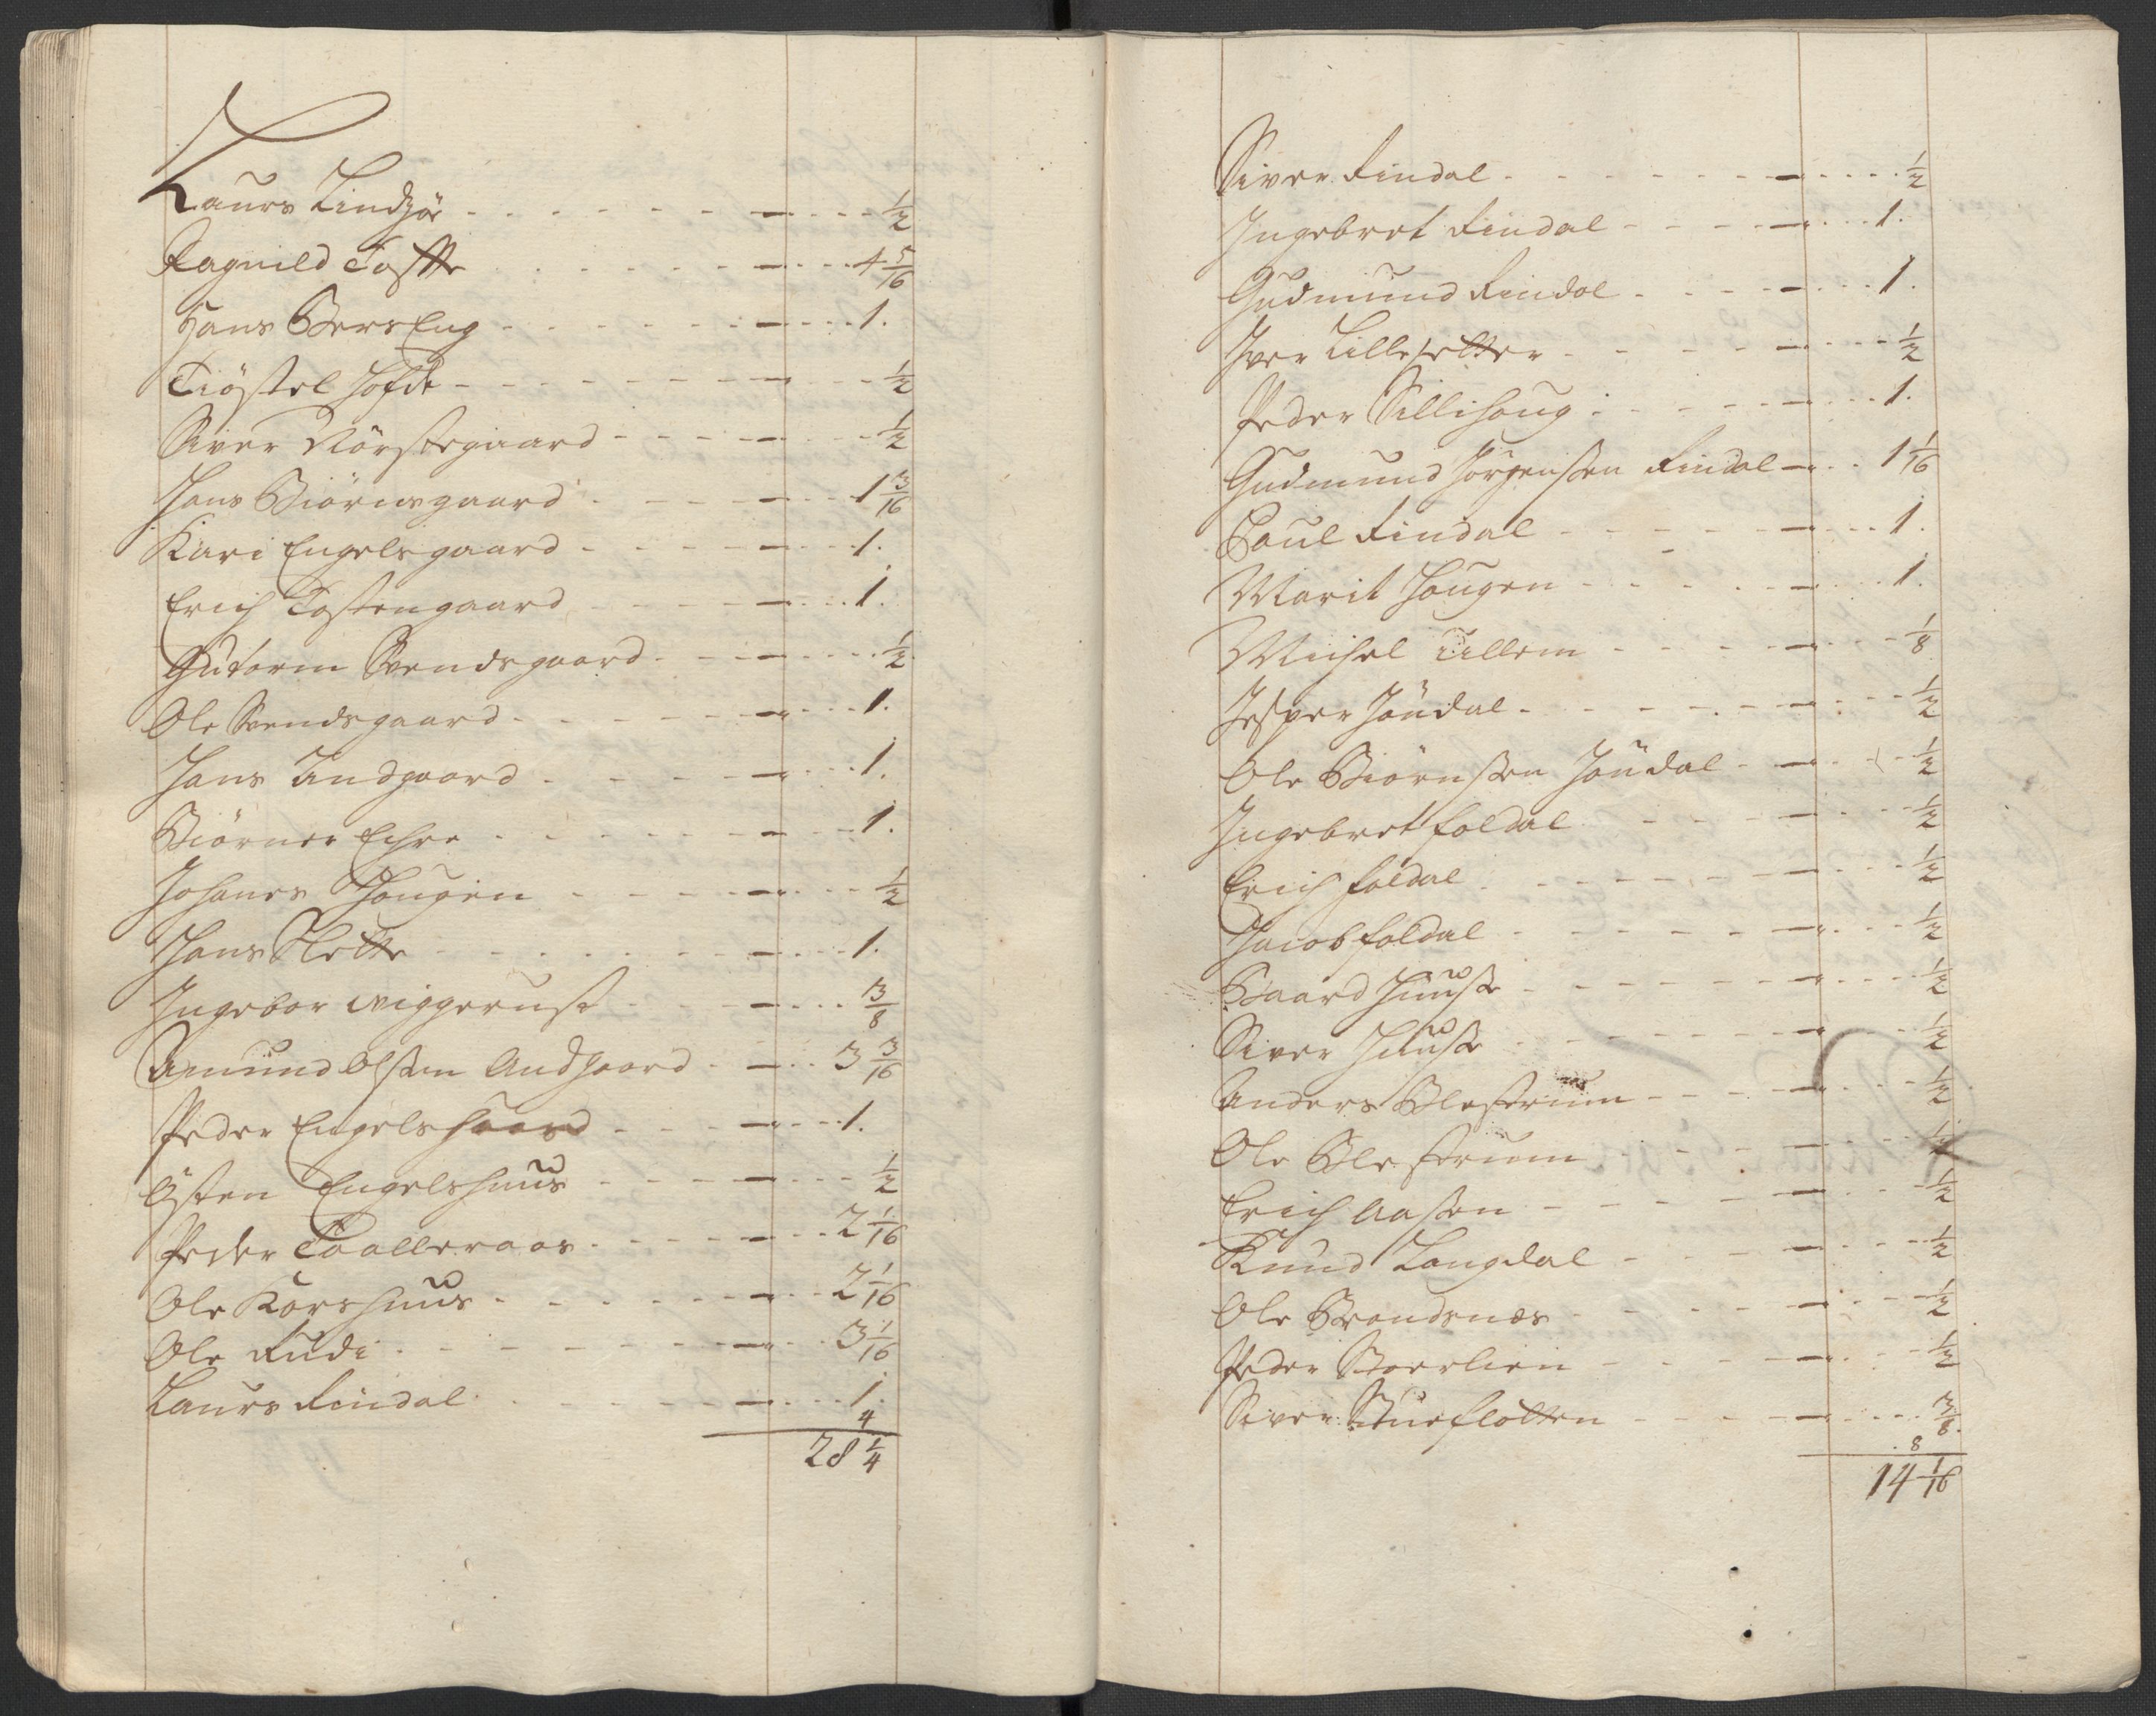 Laurs Lindsøe - - - - - - - — - - - - ½
Ragnild Toffte - - - - - - — - - - 4 5/16
Hans BersEng - - - - - - - — - - - 1.
Tiøstel Hofde - - - - - - - — - - - ½
Siver Nörstegaard - - - - — - - - ½
Hans Biörnsgaard - - - - - — - - 1 3/16
Kari Engelsgaard - - - - - — - - - 1.
Erich Tostengaard - - - - — - - - 1.
Gutorm Svendsgaard - - - — - - - - ½
Ole Svendsgaard - - - - - - — - - - 1.
Hans Undgaard - - - - - — - - - 1.
Biörner Echre - - - - - - - — - - - 1.
Johanes Hougen - - - - — - - - ½
Hans Slette - - - - - - - — - - - 1.
Ingebor Wiggerust - - - — - - - 3/8
Amund Olssen Andgaard - — - - 3 3/16
Peder Engelshaard - - - - — - - - 1.
Østen Engelshuus - - - - - — - - - ½
Peder Taalleraas - - - - - — - - 2 1/16
Ole Korshuus - - - - - - — - - 2 1/16
Ole Rudi - - - - - - - — - - - 3 1/16
Laurs Rindal - - - - - - — - - - 1.
4
28 ¼
Siver Rindal - - - - - - - - — - - - - ½
Ingebret Rindal - - - - — - - - 1.
Gudmund Rindal - - - - — - - - 1.
Iver Lillesetter - - - - - — - - - - ½
Peder Sillihoug - - - - - — - - - 1.
Gudmund Jörgenssen Rindal — - - 1 1/16
Poul Rindal - - - - - - — - - - 1.
Marit Hougen - - - - - — - - - 1.
Michel Ullem - - - - — - - - 1/8
Jesper Jøndal - - - - - - — - - - ½
Ole Biörnssen Jøndal - — - - - ½
Ingebret foldal - - - - — - - - ½
Erich foldal - - - - - - — - - - ½
Jacob foldal - - - - - - — - - - ½
Baard Huusse - - - - - - — - - - ½
Siver Huusse - - - - - - — - - - ½
Anders Blestrum - - - - — - - - ½
Ole Blestrum - - - - — - - - ½
Erich Aassen - - - - - — - - - ½
Knud Langdal - - - - — - - - ½
Ole Brandsnæs - - - - — - - - ½
Peder Storlien - - - - - — - - - ½
Siver Stueflotten - - - - — - - - 3/8
8
14 1/16